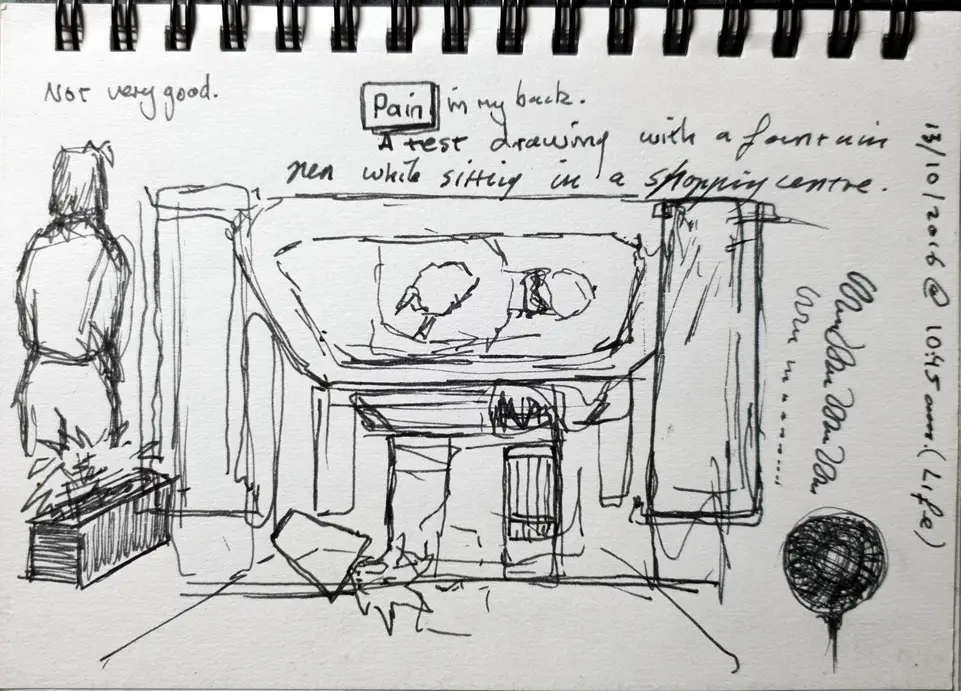 Not very good.
Pain in my back.
A test drawing with a fountain
pen while sitting in a shopping centre.
13/10/2016 @ 10:45 am. (Life)